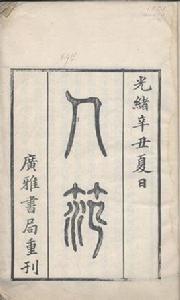 光緒辛丑夏日
人范
廣雅書局重刊